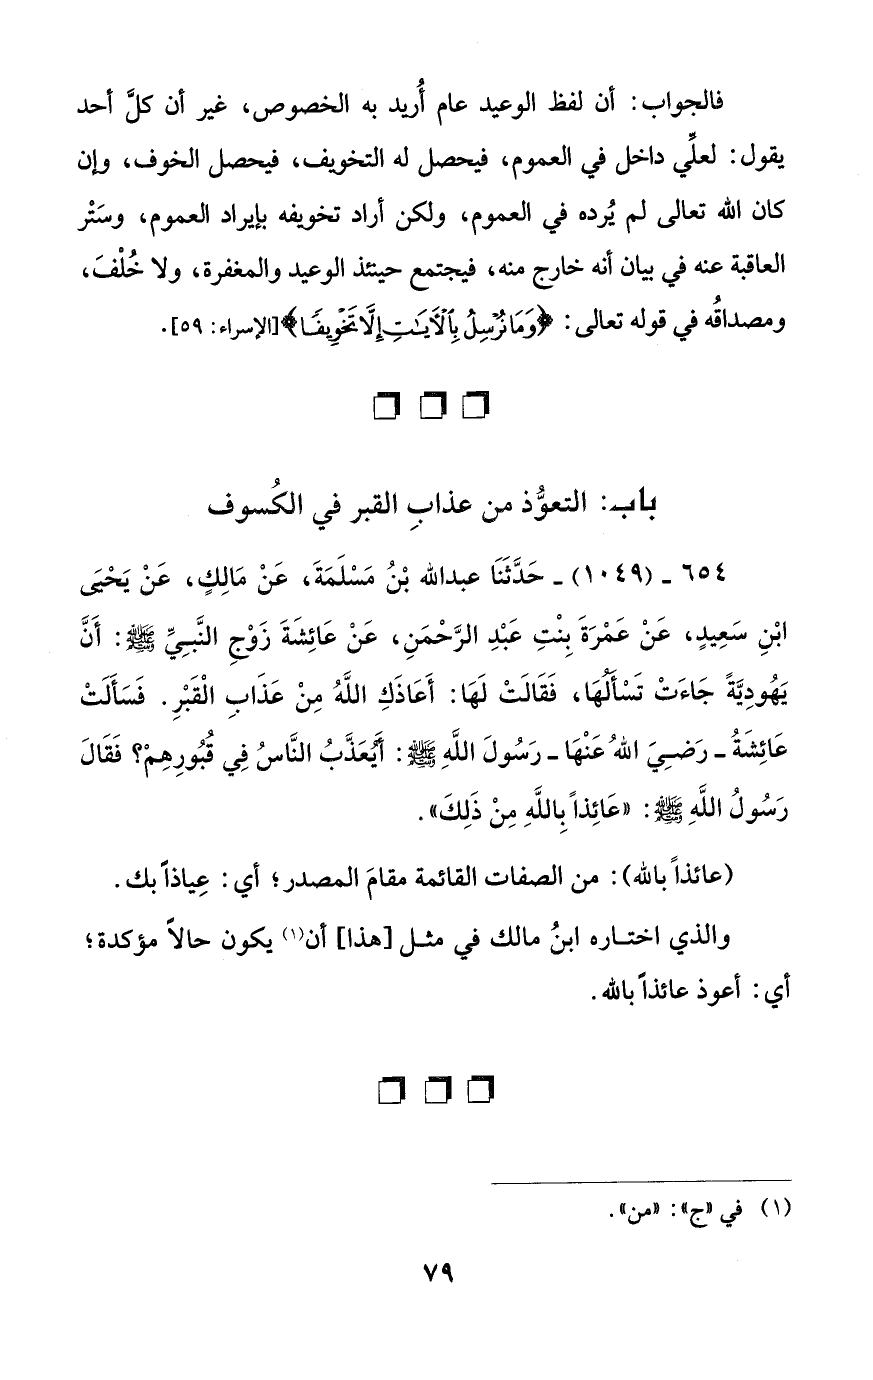 فالجواب: أن لفظ الوعيد عام أُريد به الخصوص، غير أن كلَّ أحد
يقول: لعلِّي داخل في العموم، فيحصل له التخويف، فيحصل الخوف، وإن
كان الله تعالى لم يُرده في العموم، ولكن أراد تخويفه بإيراد العموم، وسَتْر
العاقبة عنه في بيان أنه خارج منه، فيجتمع حينئذ الوعيد والمغفرة، ولا خُلْفَ،
ومصداقُه في قوله تعالى: ﴿وَمَا نُرْسِلُ بِالْآيَاتِ إِلَّا تَخْوِيفًا﴾ [الإسراء: ٥٩].
باب: التعوُّذ من عذابِ القبر في الكُسوف
٦٥٤ ـ (١٠٤٩) ـ حَدَّثَنَا عبدالله بْنُ مَسْلَمَةَ، عَنْ مَالِكٍ، عَنْ يَحْيَى
ابْنِ سَعِيدٍ، عَنْ عَمْرَةَ بِنْتِ عَبْدِ الرَّحْمَنِ، عَنْ عَائِشَةَ زَوْجِ النَّبِيِّ ﷺ: أَنَّ
يَهُودِيَّةً جَاءَتْ تَسْأَلُهَا، فَقَالَتْ لَهَا: أَعَاذَكِ اللَّهُ مِنْ عَذَابِ الْقَبْرِ. فَسَأَلَتْ
عَائِشَةُ ـ رَضِيَ اللهُ عَنْهَا ـ رَسُولَ اللَّهِ ﷺ: أَيُعَذَّبُ النَّاسُ فِي قُبُورِهِمْ؟ فَقَالَ
رَسُولُ اللَّهِ ﷺ: «عَائِذاً بِاللَّهِ مِنْ ذَلِكَ».
(عائذاً بالله): من الصفات القائمة مقامَ المصدر؛ أي: عِياذاً بك.
والذي اختاره ابنُ مالك في مثل [هذا] أن(١) يكون حالاً مؤكدة؛
أي: أعوذ عائذاً بالله.
(١) في «ج»: «من».
٧٩